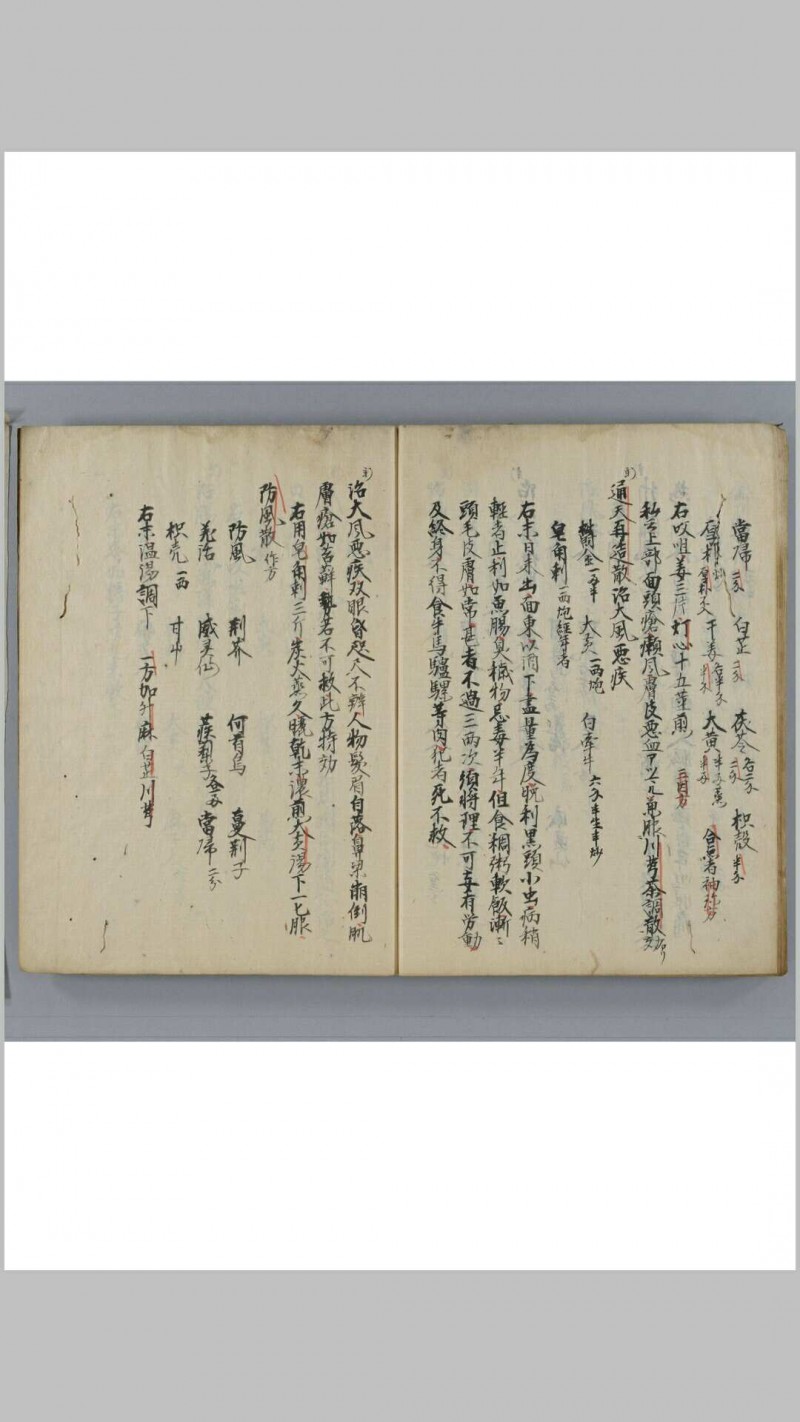 當帰 二分 白芷 二分 茯苓 各二分 枳殻 半分
干姜 大黄
右㕮咀姜三片灯心十五茎煎
私云上部面頭瘡癩風膚皮悪血 川芎茶調散
通天再造散治大風悪疾
欝金 五半 大黄 一两炮 白牽牛 六分半生半炒
皂角刺 一两炮経年者
右末日未出面東以酒下盡量為度晩利黒頭小虫病稍
軽者止利如魚腸臭穢物忌毒半年但食稠粥軟飯漸〻
頭毛皮膚如常甚者不過三两次須將理不可妄有労動
及終身不得食牛馬驢騾等肉犯者死不救
治大風悪疾双眼昏咫尺不辨人物鬂眉自落鼻梁崩倒肌
膚瘡如苔蘚勢若不可救此方特効
右用皂角刺三斤炭火蒸久晩乾末濃煎大黄湯下一匕服
防風散 作方
防風 荊芥 何首烏 蔓荊子
羌活 威灵仙 蒺梨子 當帰 二分
枳壳 一两 甘中
右末温湯調下 一方加升麻白芷川芎